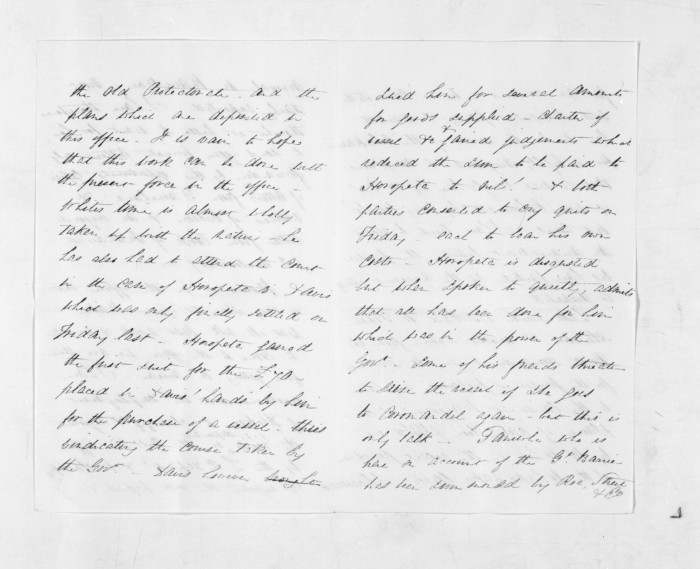 the Old Protectorate and the
plans which are deposited in
this office. It is vain to hope
that this work can be done with
the present force in the office -
White's time is almost wholly
taken up with the natives - he
has also had to attend the Court
in the case of Horopeta v. Davis
which was only finally settled on
Friday last - Horopeta gained
the first suit for the £70
placed in Davis' hands by him
for the purchase of a vessel - thus
vindicating the course taken by
the Govt - Davis however
sued him for several amounts
for goods supplied - Charter of
vessel &c & gained judgements which
reduced the sum to be paid to
Horopeta to nil! - & both
parties consented to cry quits on
Friday - each to bear his own
costs - Horopeta is disgusted
but when spoken to quietly, admits
that all has been done for him
which was in the power of the
Govt - Some of his friends threaten
to seize the vessel if she goes
to Coromandel again - but this is
only talk - who is
here on account of the Gt Barrier
has been summoned by Street
& Co